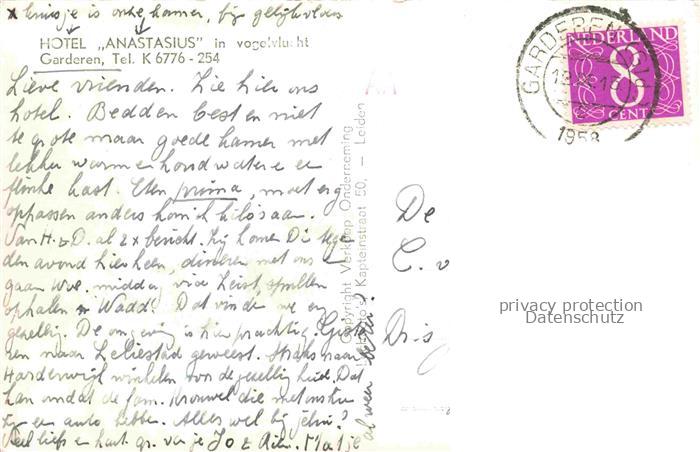 x kruisje is onze kamer, bij gelijkvloers
HOTEL „ANASTASIUS” in vogelvlucht
Garderen, Tel. K 6776 - 254
Lieve vrienden. Zie hier ons
hotel. Bedden best en niet
te grote maar goede kamer met
lekker warm en koud water en
flinke kast. Eten prima, moet erg
oppassen anders kom ik kilo's aan.
Van H. & D. al 2 x bericht. Zij komen Di tegen
den avond hierheen, dineren met ons
gaan Woe. middag via Zeist, spullen
ophalen Wadd. Dat vinden we erg
gezellig. De omgeving is hier prachtig. Gister
zijn naar Leliestad geweest. Straks naar
Harderwijk winkelen voor de gezellig heid. Dat
kan omdat de fam. Krouwel die met ons
zijn een auto hebben. Alles wel bij jelui?
Veel liefs en hart. gr. van je Jo & Rien.
al weer beter?
Copyright Verkoop Onderneming
Kapteinstraat 50, — Leiden
De
C. v
Dris
GARDEREN
1958
NEDERLAND
8
CENT
privacy protection
Datenschutz